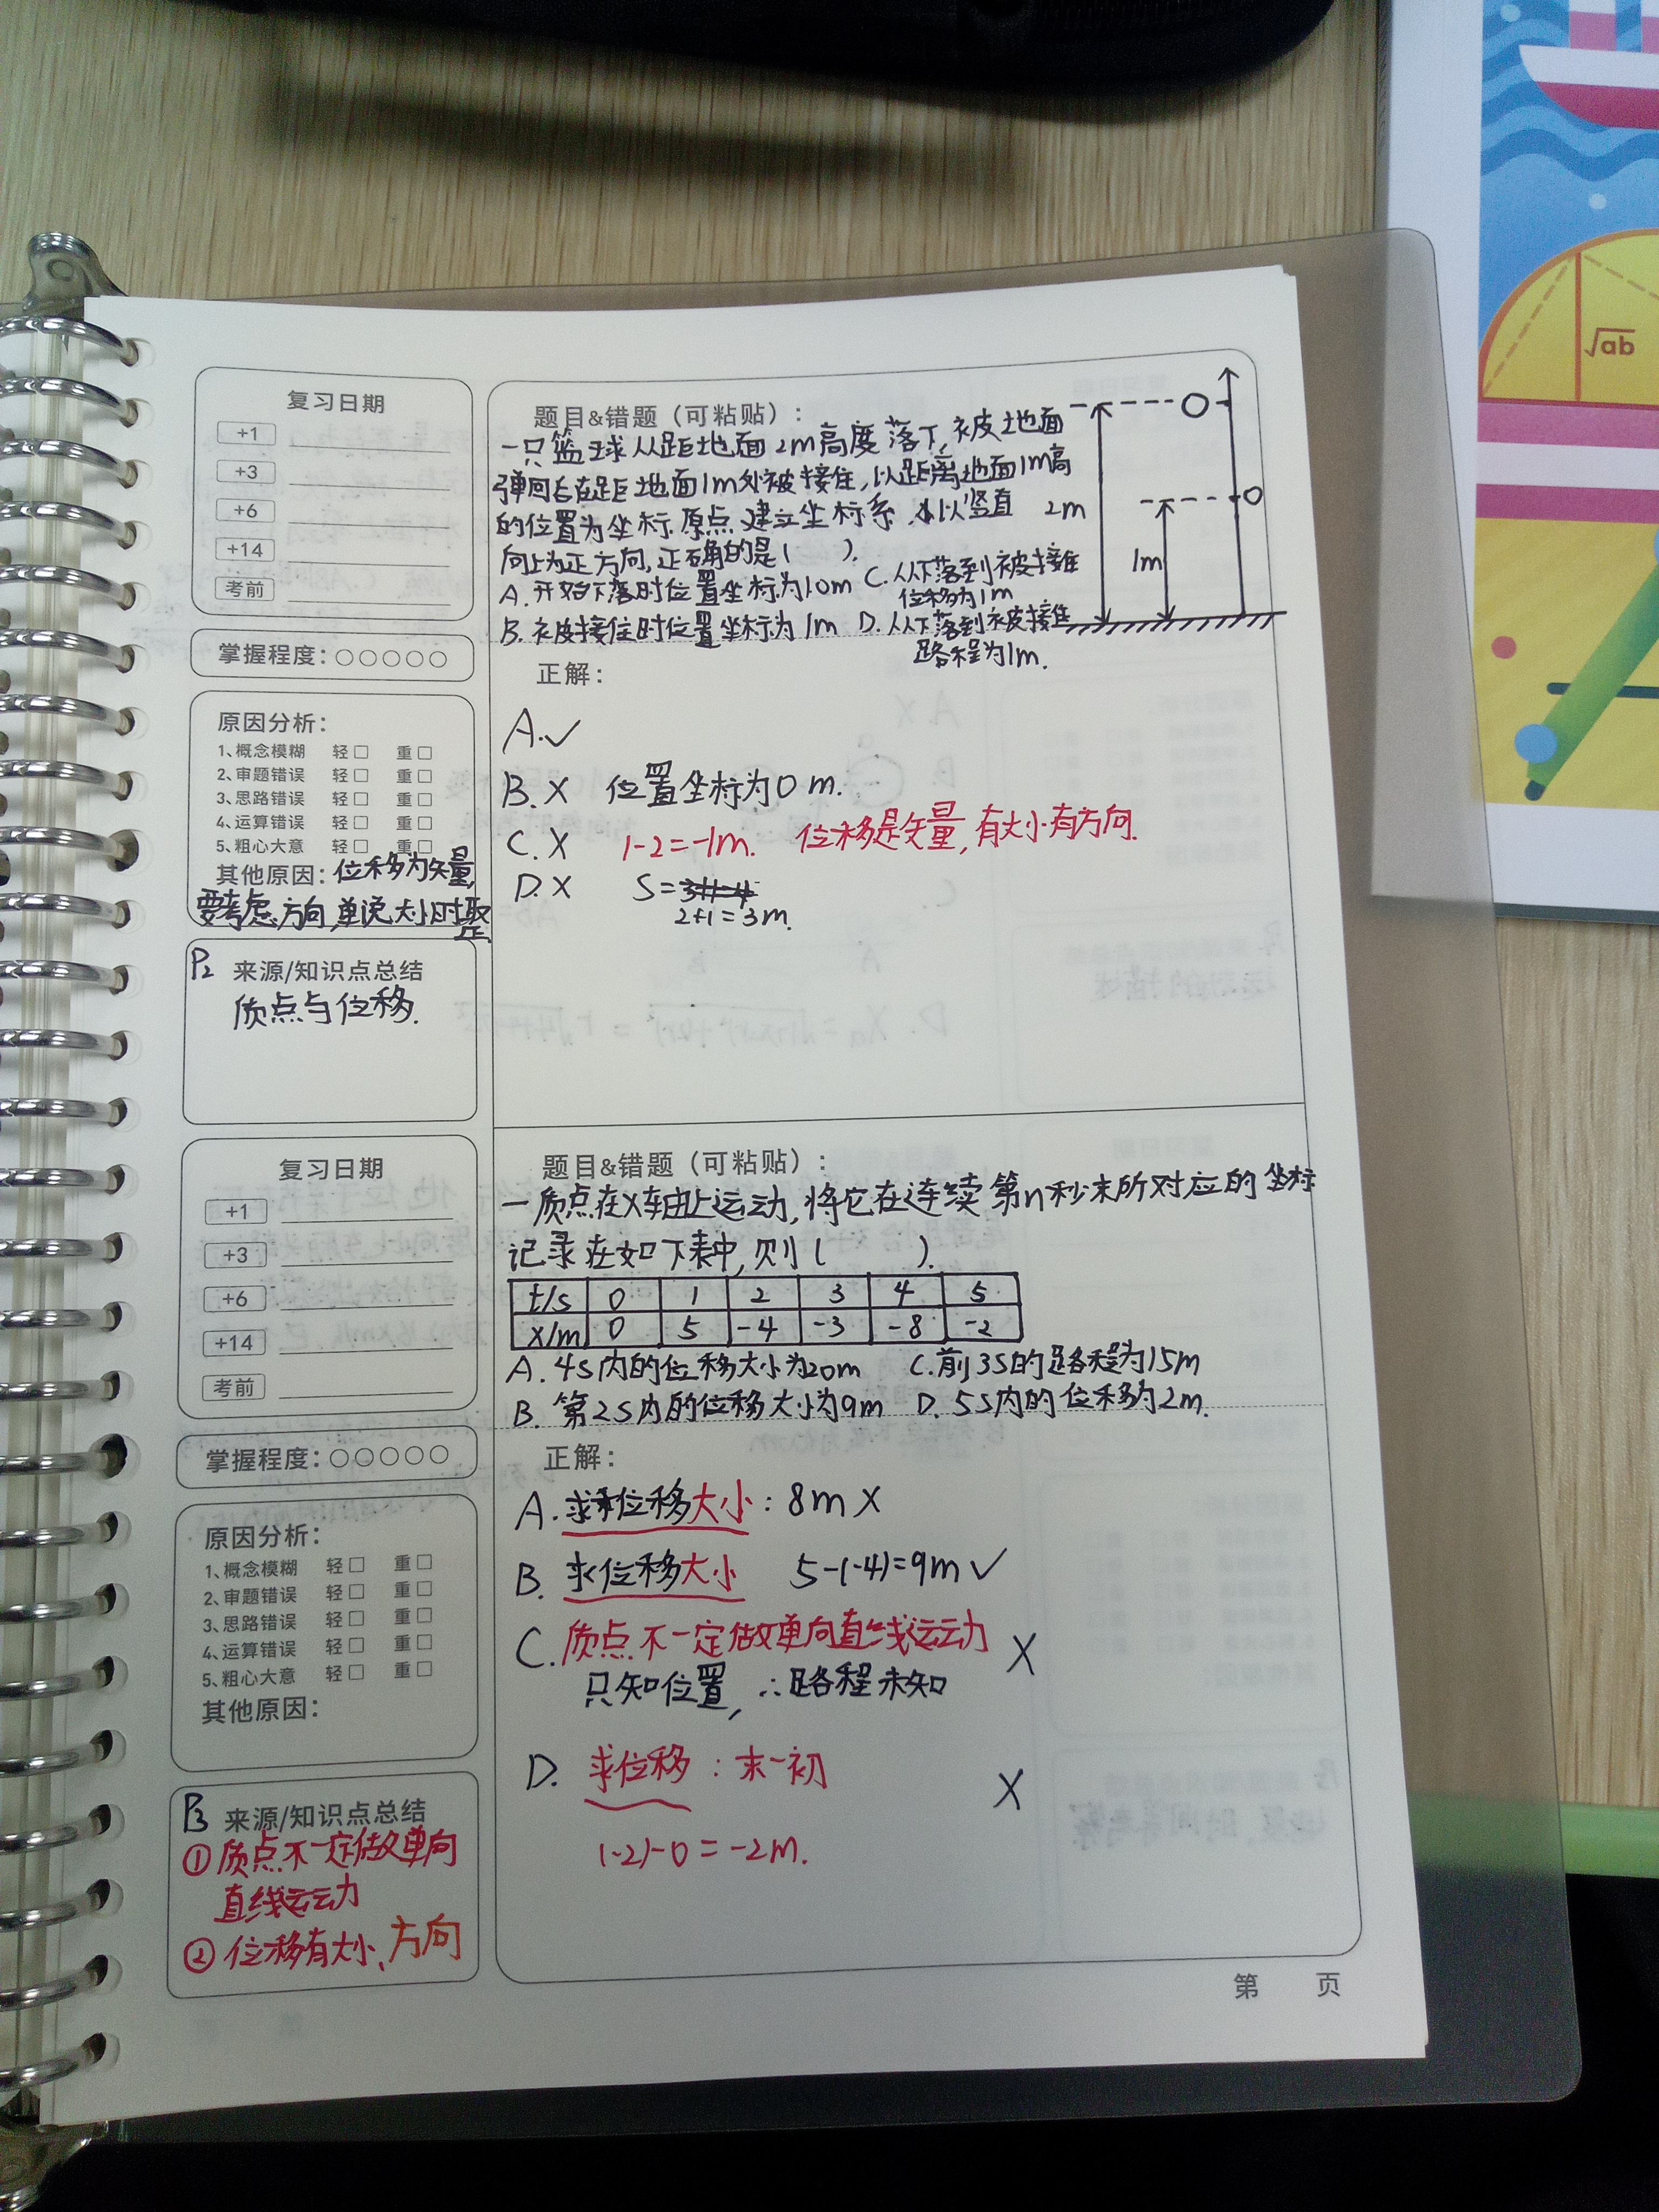 √ab
复习日期
+1
+3
+6
+14
考前
掌握程度：○○○○○
原因分析：
1、概念模糊 轻□ 重□
2、审题错误 轻□ 重□
3、思路错误 轻□ 重□
4、运算错误 轻□ 重□
5、粗心大意 轻□ 重□
其他原因：位移为矢量,
要考虑方向,单说大小时取
正
P₂ 来源/知识点总结
质点与位移.
题目&错题（可粘贴）：
一只篮球从距地面2m高度落下,被地面
弹回后在距地面1m处被接住,以距离地面1m高
的位置为坐标原点建立坐标系,以竖直
向上为正方向,正确的是( ).
A.开始下落时位置坐标为1.0m C.从下落到被接住
位移为1m
B.被接住时位置坐标为1m D.从下落到被接住
路程为1m.
2m
1m
正解：
A.✓
B.X 位置坐标为0m.
C.X 1-2=-1m. 位移是矢量,有大小有方向.
D.X S=
2+1=3m.
复习日期
+1
+3
+6
+14
考前
掌握程度：○○○○○
原因分析：
1、概念模糊 轻□ 重□
2、审题错误 轻□ 重□
3、思路错误 轻□ 重□
4、运算错误 轻□ 重□
5、粗心大意 轻□ 重□
其他原因：
P₃ 来源/知识点总结
①质点不一定做单向
直线运动
②位移有大小、方向
题目&错题（可粘贴）：
一质点在X轴上运动,将它在连续第n秒末所对应的坐标
记录在如下表中,则( ).
t/s 0 1 2 3 4 5
x/m 0 5 -4 -3 -8 -2
A.4s内的位移大小为20m C.前3s的路程为15m
B.第2s内的位移大小为9m D.5s内的位移为2m.
正解：
A.求位移大小：8m X
B.求位移大小 5-(-4)=9m✓
C.质点不一定做单向直线运动 X
只知位置,∴路程未知
D.求位移：末-初 X
(-2)-0=-2m.
第 页